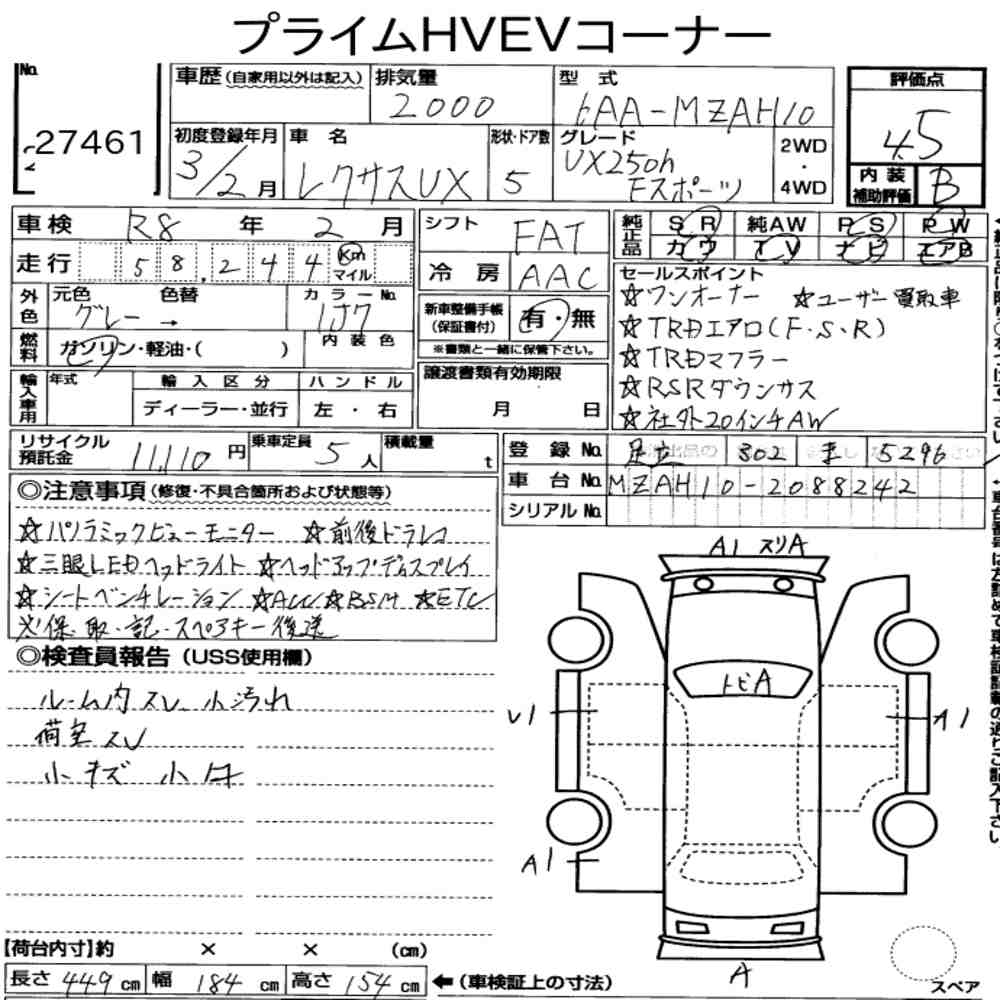 プライムHVEVコーナー
No.
27461
車歴(自家用以外は記入)
排気量
2000
型 式
6AA-MZAH10
評価点
4.5
初度登録年月
3/2月
車 名
レクサスUX
形状・ドア数
5
グレード
UX250h
Fスポーツ
2WD
・
4WD
内 装
補助評価
B
車検 R8 年 2 月
シフト FAT
純正品
SR 純AW PS PW
カワ TV ナビ エアB
走行 58,244 Km
マイル
冷 房 AAC
セールスポイント
☆ワンオーナー ☆ユーザー買取車
☆TRDエアロ(F・S・R)
☆TRDマフラー
☆RSRダウンサス
☆社外20インチAW
外色
元色 色替 カラーNo.
グレー → 1J7
新車整備手帳
(保証書付)
有・無
※書類と一緒に保管下さい。
燃料
ガソリン・軽油・( )
内 装 色
譲渡書類有効期限
月 日
輸入車用
年式
輸 入 区 分
ハ ン ド ル
ディーラー・並行
左 ・ 右
リサイクル
預託金
11,110 円
乗車定員
5 人
積載量
t
登 録 No. 足立 302 す 5296
車 台 No. MZAH10-2088242
シリアル No.
◎注意事項(修復・不具合箇所および状態等)
☆パノラミックビューモニター ☆前後ドラレコ
☆三眼LEDヘッドライト ☆ヘッドアップディスプレイ
☆シートベンチレーション ☆ACC ☆BSM ☆ETC
※保・取・記・スペアキー後送
◎検査員報告(USS使用欄)
ルーム内スレ 小汚れ
荷室スレ
小キズ 小凹
A1 スリA
トビA
A1
A
【荷台内寸】約 × × (cm)
長さ 449 cm 幅 184 cm 高さ 154 cm
←(車検証上の寸法)
スペア